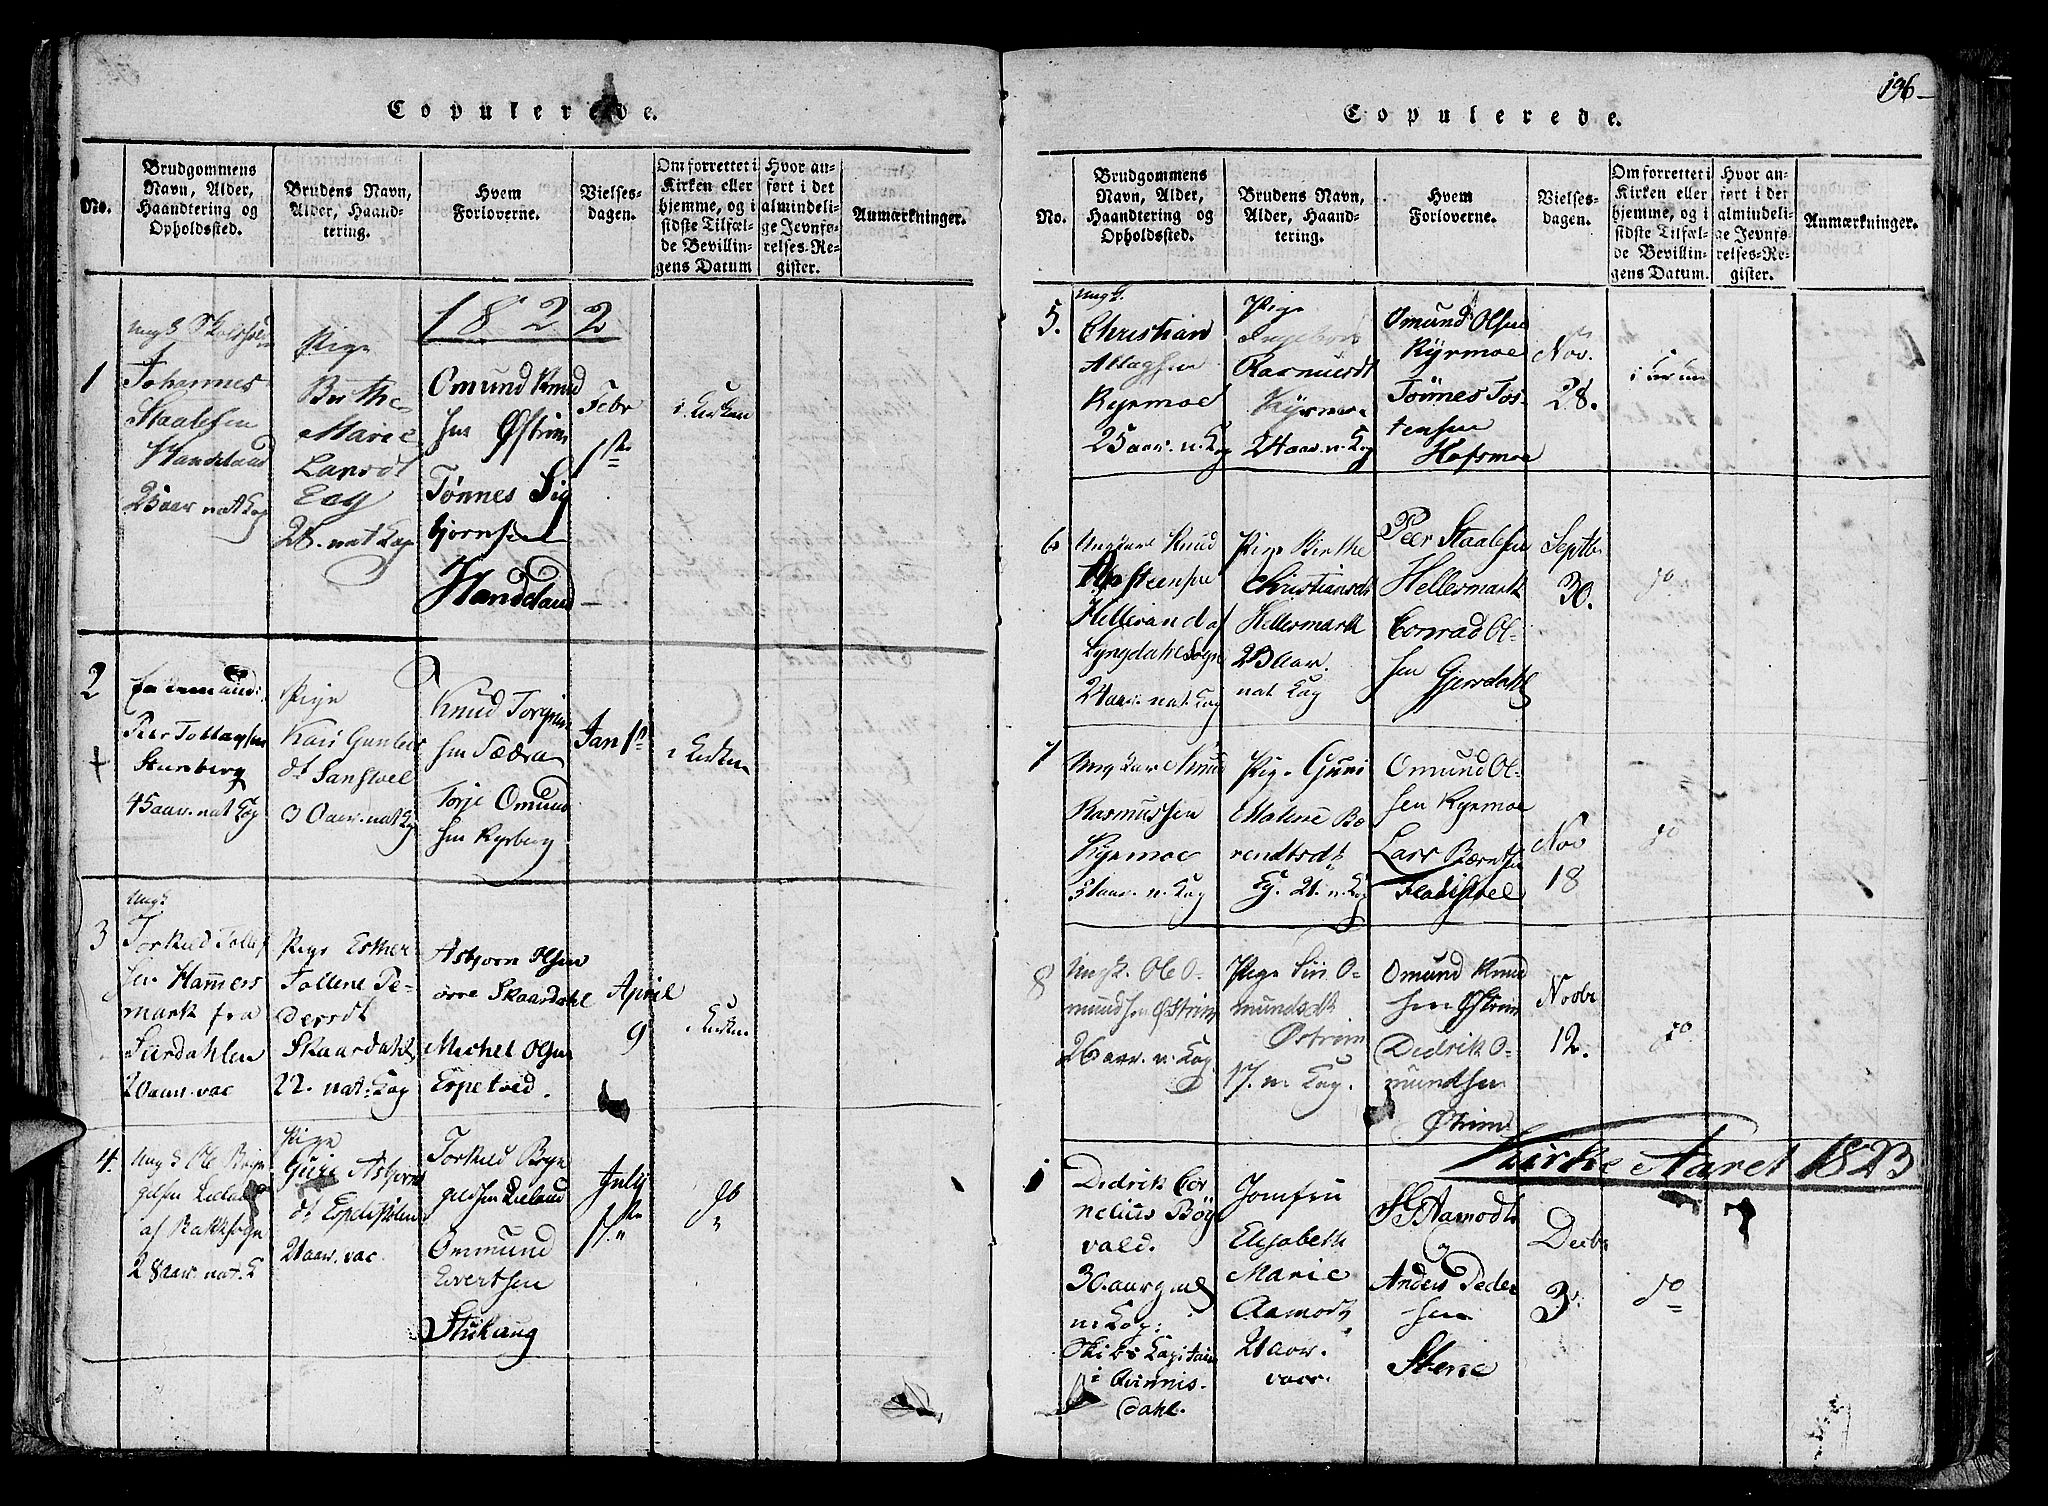 Copulerede.
No.
Brudgommens
Navn, Alder,
Haandtering og
Opholdssted.
Brudens Navn,
Alder, Haand-
tering.
Hvem
Forloverne.
Vielses-
dagen.
Om forrettet i
Kirken eller
hjemme, og i
sidste Tilfæl-
de Bevillin-
gens Datum
Hvor an-
ført i det
almindeli-
ge Jevnfø-
relses-Re-
gister.
Anmærkninger.
1822
1
Johannes
Staalesen
Handeland
25 aar nat Cop
Pige
Birthe
Marie
Larsdt
Eeg
28. nat Cop
Omund Knud
sen Østrim
Tønnes Sig
bjørnsen
Handeland
Febr
1ste
i Kirken
2
Enkemand:
Peer Tollagsen
Stensberg
45 aar. nat Cop
Pige
Kari Gunlect
dt Sansvel
30 aar. nat Cop
Knud Torgrim
sen Sædra
Torje Omund
sen Rysberg
Jan 1ste
i Kirken
3
Ungk
Torkild Tollef
sen Hamers
mark fra
Siirdahlen
20 aar. vac
Pige Esther
Tollene Pe-
dersdt
Skaardahl
22. nat. Cop
Asbjorn Olsen
øvre Skaardahl
Michel Olsen
Espetved.
April
9
i Kirken
4.
Ungk Ole Bryn
gelsen Leeland
af Bakkesogn
28 aar. nat. C
Pige
Guri Asbjorns
dt Espetstølen
21 aar. vac.
Torkild Bryn
gelsen Leeland
Ommund
Evertsen
Stükaug
July
1ste
do
196
Copulerede.
No.
Brudgommens
Navn, Alder,
Haandtering og
Opholdssted.
Brudens Navn,
Alder, Haand-
tering.
Hvem
Forloverne.
Vielses-
dagen.
Om forrettet i
Kirken eller
hjemme, og i
sidste Tilfæl-
de Bevillin-
gens Datum.
Hvor an-
ført i det
almindeli-
ge Jevnfø-
relses-Re-
gister.
Anmærkninger.
5.
Ungk.
Christian
Attagsen
Ryrmoe
25 aar. n. Cop
Pige
Ingebor
Rasmusdt
Kyrmoe
24 aar. n. Cop
Omund Olsen
Ryrmoe
Tönnes Tos-
tensen
Hofsmoe
Nov.
28.
i Kirken
6
Ungkar Knud
Opsteensen
Hellerand af
Lyngdahl Sogn
24 aar. nat Cop
Pige Birthe
Christiansdt
Hellermark
23 aar.
nat Cop
Peer Staalesen
Hellermark
Conrad Ol-
sen Gjersdahl
Septb.
30.
do
7
Ungkar Knud
Rasmussen
Kyrmoe
n. Cop
Pige Guri
Malene Be
rendtsdt
Eg. 21. n. Cop
Omund Ol-
sen Ryrmoe
Lars Bærntsen
Fladisvel
Nov
18
do
8
Ungk. Ole O-
mundsen Østrim
26 aar. n. Cop.
Pige Siri O-
mundsdt
Østrim
17. n Cop.
Omund Knud
sen Østrim
Didrik O-
mundsen
Østrim
Novbr
12.
do
Kirke Aaret 1823
1
Didrik Cor
nelius Böy
vald.
30. aar gml
n. Cop:
Skibs Capitain
i Qvinnis-
dahl.
Jomfru
Elisabeth
Marie
Aamodt
21 aar.
vacc.
Aamodt
og
Anders Peder
sen
Stene
Decbr
3.
do